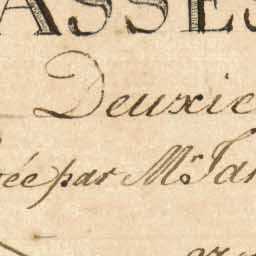 ASSES
Deuxie
ée par Mr. Jan